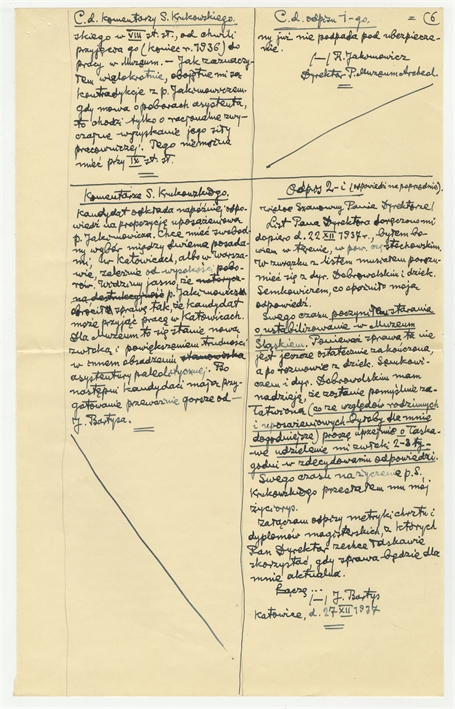 C.d. komentarzy S. Krukowskiego.
skiego w VIII st. sł., od chwili
przyjęcia go (koniec r. 1936) do
pracy w Muzeum. — Jak zaznaczy-
łem więlokrotnie, obojętnie mi są
kontradykcje z p. Jakimowiczem.
gdy mowa o poborach asystenta,
to chodzi tylko o racjonalne zwy-
czajne wyzyskanie jego siły
pracowniczej. Tego nie można
mieć przy IX st. sł.
C.d. odpisu 1-go.
= (6
ny już nie podpada pod ubezpiecze-
nie.
/—/ R. Jakimowicz
Dyrektor P. Muzeum Archeol.
Komentarze S. Krukowskiego.
Kandydat odkłada napóźniej odpo-
wiedź na propozycję uposażeniową
p. Jakimowicza. Chce mieć swobod-
ny wybór między dwiema posada-
mi: w Katowicach, albo w Warsza-
wie, zależnie od wysokości pobo-
rów. Widzimy jasno, że
sprawy tak, że kandydat
może przyjąć pracę w Katowicach.
Dla Muzeum to się stanie nową
zwłoką i powiększeniem trudności
w onnem obsadzeniu stanowiska
asystentury paleolitycznej. Bo
następni kandydaci mają przy-
gotowanie przeważnie gorsze od
J. Bartysa.
Odpis 2-i (odpowiedzi na poprzednie).
Wielce Szanowny Panie Dyrektorze!
List Pana Dyrektora doręczono mi
dopiero d. 22 XII 1937., byłem bo-
wiem w terenie, w pow. częstochowskim.
W związku z listem musiałem porozu-
mieć się z dyr. Dobrowolskim i dziek.
Semkowiczem, co opóźniło moją
odpowiedź.
Swego czasu poczyniłem starania
o ustabilizowanie w Muzeum
Śląskiem. Ponieważ sprawa ta nie
jest jeszcze ostatecznie zakończona,
a po rozmowie z dziek. Semkowi-
czem i dyr. Dobrowolskim mam
nadzieję, że zostanie pomyślnie za-
łatwiona (co ze względów rodzinnych
i uposażeniowych byłoby dla mnie
dogodniejsze) proszę uprzejmie o łaska-
we udzielenie mi zwłoki 2-3 ty-
godni w zdecydowaniu odpowiedzi.
Swego czasu na życzenie p. S.
Krukowskiego przesłałem mu mój
życiorys.
Załączam odpisy metryki chrztu i
dyplomów magisterskich, z których
Pan Dyrektor zechce łaskawie
skorzystać, gdy sprawa będzie dla
mnie aktualna.
Łączę...
/—/ J. Bartys
Katowice, d. 27 XII 1937